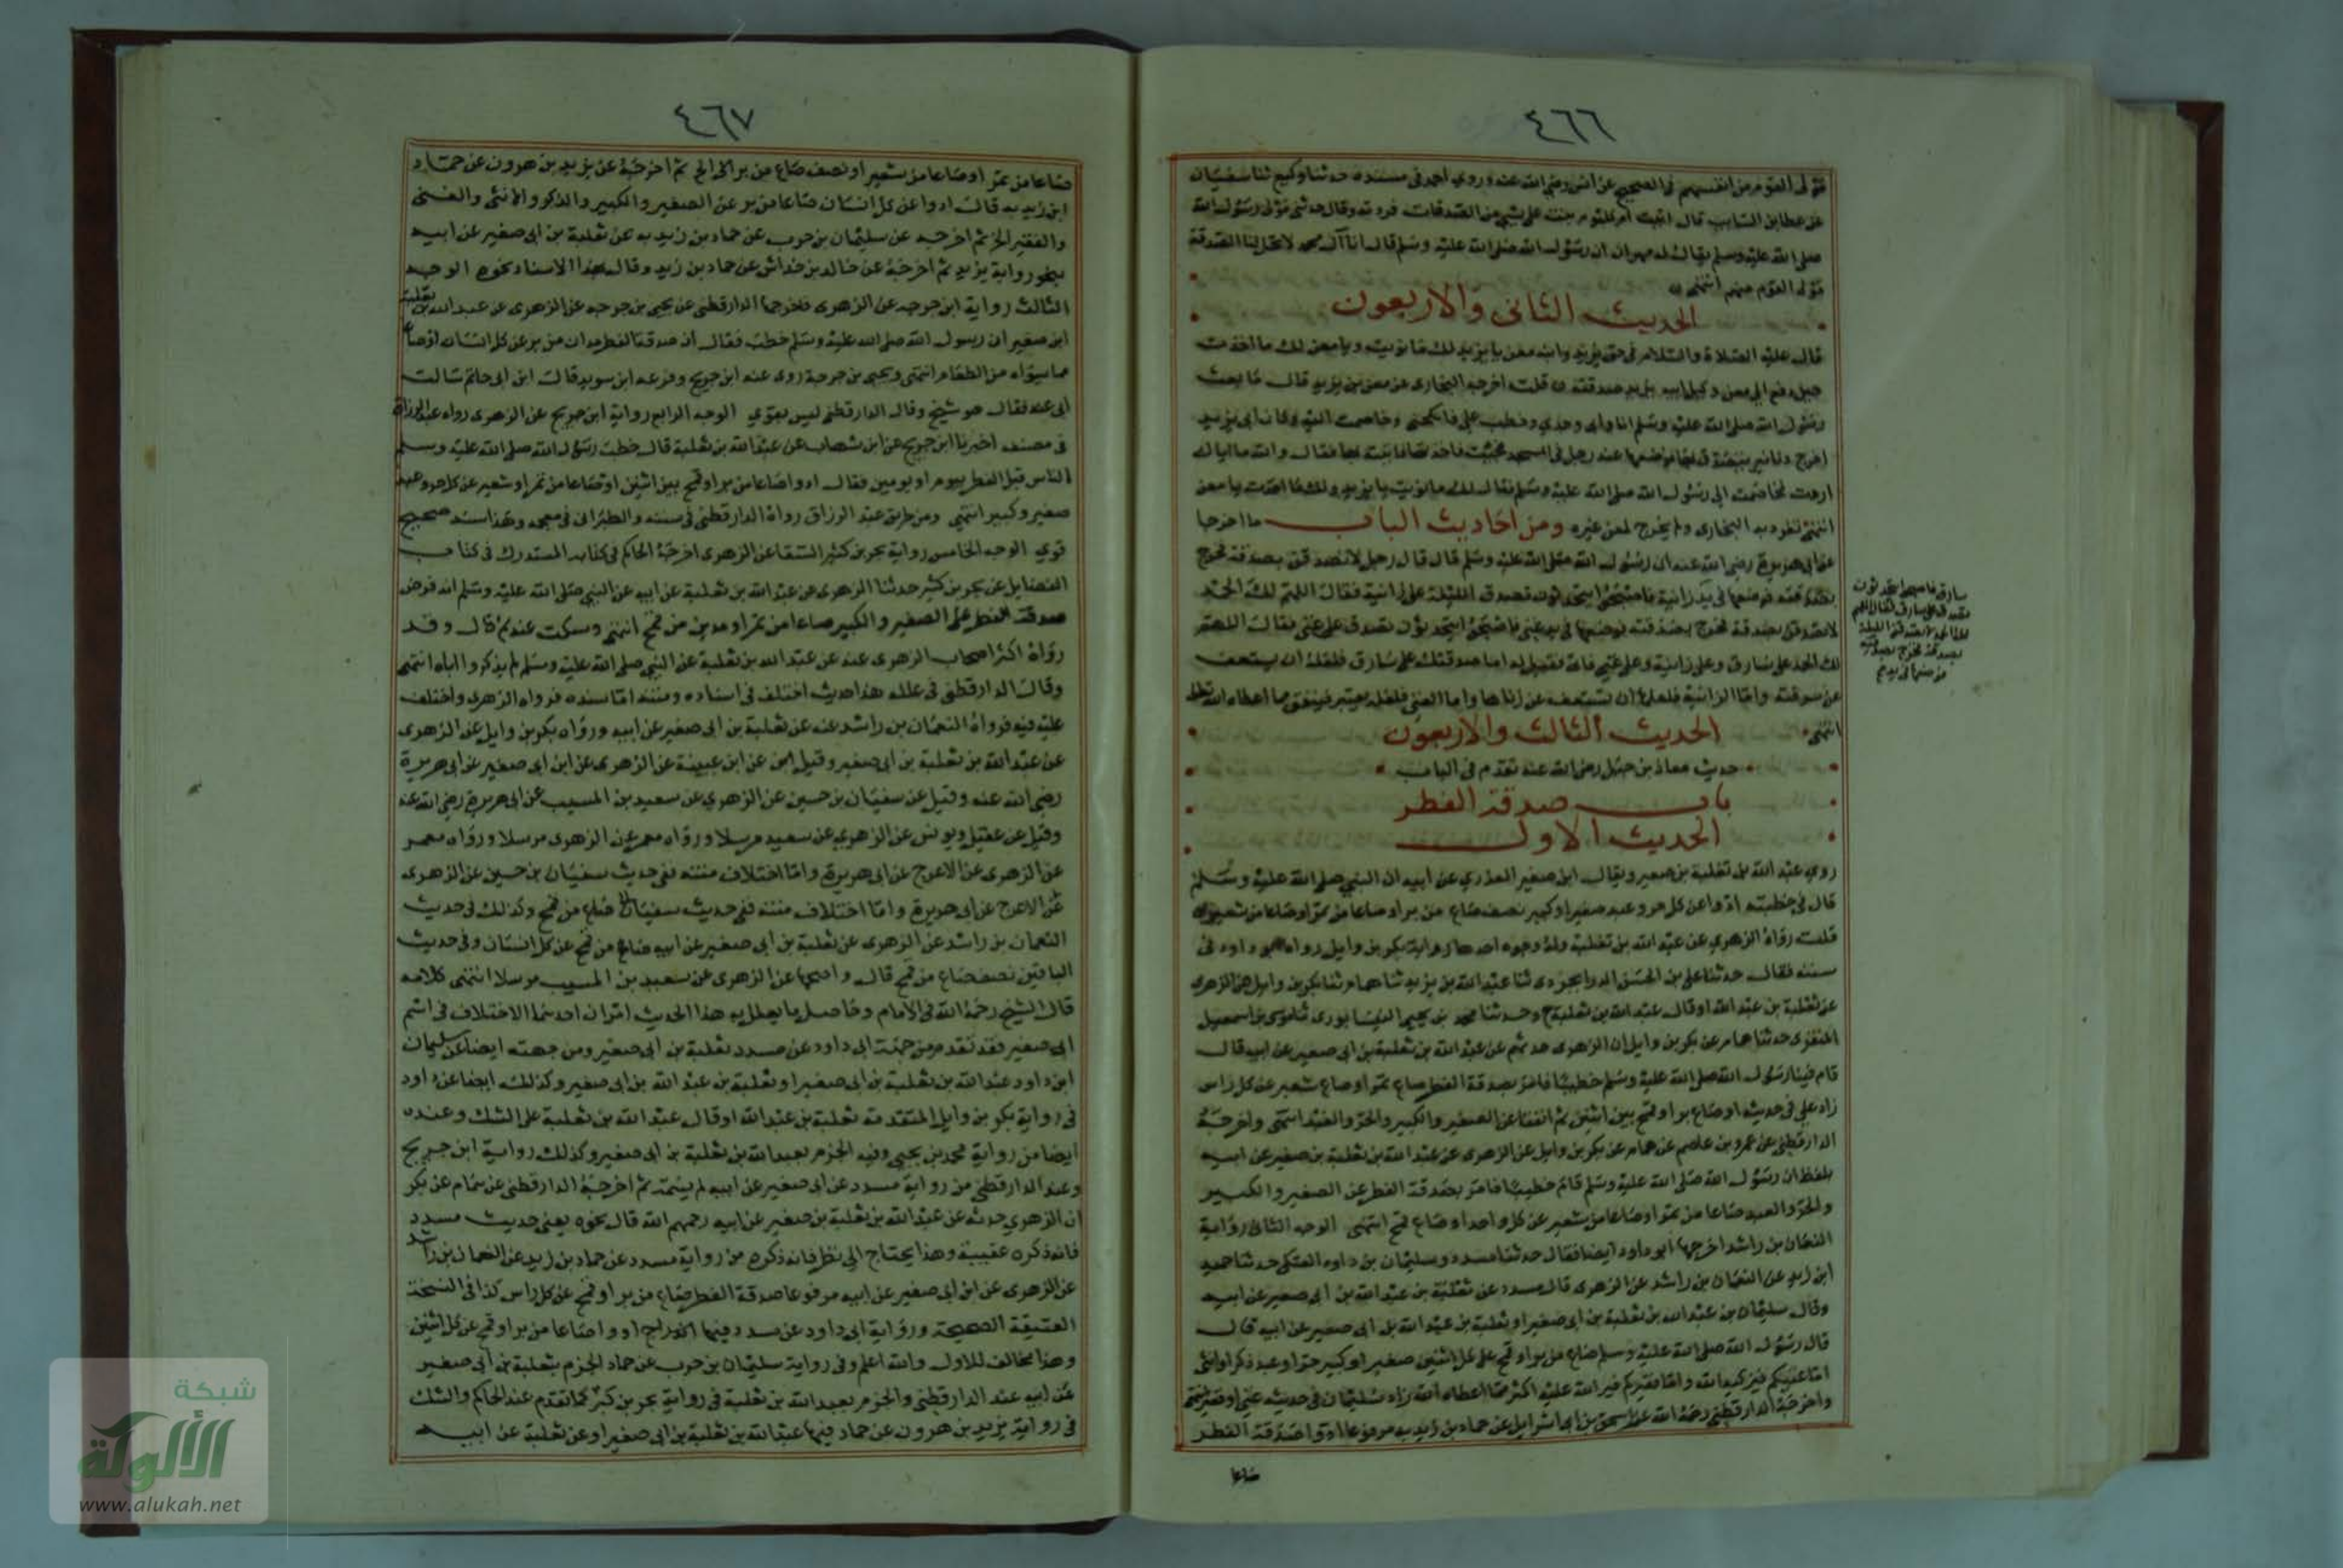 ٤٦٦
مولى القوم من انفسهم في الصحيح عن انس رضي الله عنه وروى احمد في مسنده حدثنا وكيع ثنا سفيان
عن عطا بن السايب قال اتيت ام كلثوم بنت علي بشي من الصدقات فردته وقال حدثني مولى رسول الله
صلى الله عليه وسلم يقال له مهران ان رسول الله صلى الله عليه وسلم قال انا آل محمد لا تحل لنا الصدقة
مولى القوم منهم انتهى
الحديث الثاني والاربعون
قال عليه الصلاة والسلام في حق يزيد وابنه معن يا يزيد لك ما نويت ويا معن لك ما اخذت
حين دفع الى معن وكيل ابيه يزيد صدقته قلت اخرجه البخاري عن معن بن يزيد قال بايعت
رسول الله صلى الله عليه وسلم انا وابي وجدي وخطب علي فانكحني وخاصمت اليه وكان ابي يزيد
اخرج دنانير يتصدق بها فوضعها عند رجل في المسجد فجئت فاخذتها فاتيته بها فقال والله ما اياك
اردت فخاصمته الى رسول الله صلى الله عليه وسلم فقال لك ما نويت يا يزيد ولك ما اخذت يا معن
انتهى تفرد به البخاري ولم يخرج لمعن غيره ومن احاديث الباب ما اخرجا
عن ابي هريرة رضي الله عنه ان رسول الله صلى الله عليه وسلم قال قال رجل لاتصدقن بصدقة فخرج
بصدقته فوضعها في يد زانية فاصبحوا يتحدثون تصدق الليلة على زانية فقال اللهم لك الحمد
لاتصدقن بصدقة فخرج بصدقته فوضعها في يد غني فاصبحوا يتحدثون تصدق على غني فقال اللهم
لك الحمد على سارق وعلى زانية وعلى غني فاتي فقيل له اما صدقتك على سارق فلعله ان يستعف
عن سرقته واما الزانية فلعلها ان تستعف عن زناها واما الغني فلعله يعتبر فينفق مما اعطاه الله تعالى
انتهى الحديث الثالث والاربعون
حديث معاذ بن جبل رضي الله عنه تقدم في الباب
باب صدقة الفطر
الحديث الاول
روى عبد الله بن ثعلبة بن صعير ويقال ابن صغير العذري عن ابيه ان النبي صلى الله عليه وسلم
قال في خطبته ادوا عن كل حر وعبد صغير او كبير نصف صاع من بر او صاعا من تمر او صاعا من شعير
قلت رواه الزهري عن عبد الله بن ثعلبة وله وجوه احدها رواية بكر بن وايل رواه ابو داود في
سننه فقال حدثنا علي بن الحسن الدرابجردي ثنا عبد الله بن يزيد ثنا همام ثنا بكر بن وايل عن الزهري
عن ثعلبة بن عبد الله او قال عبد الله بن ثعلبة ح وحدثنا محمد بن يحيى النيسابوري ثنا موسى بن اسمعيل
المنقري حدثنا همام عن بكر بن وايل ان الزهري حدثهم عن عبد الله بن ثعلبة بن ابي صعير عن ابيه قال
قام فينا رسول الله صلى الله عليه وسلم خطيبا فامر بصدقة الفطر صاع تمر او صاع شعير عن كل راس
زاد علي في حديثه او صاع بر او قمح بين اثنين ثم اتفقا عن الصغير والكبير والحر والعبد انتهى واخرجه
الدارقطني عن عمرو بن عاصم عن همام عن بكر بن وايل عن الزهري عن عبد الله بن ثعلبة بن صغير عن ابيه
بلفظ ان رسول الله صلى الله عليه وسلم قام خطيبا فامر بصدقة الفطر عن الصغير والكبير
والحر والعبد صاعا من تمر او صاعا من شعير عن كل واحد او صاع قمح انتهى الوجه الثاني رواية
النعمان بن راشد اخرجها ابو داود ايضا فقال حدثنا مسدد وسليمان بن داود العتكي حدثنا حميد
ابن زيد عن النعمان بن راشد عن الزهري قال مسدد عن ثعلبة بن عبد الله بن ابي صغير عن ابيه
وقال سليمان بن عبد الله بن ثعلبة بن ابي صغير او ثعلبة بن عبد الله بن ابي صغير عن ابيه قال
قال رسول الله صلى الله عليه وسلم صاع من بر او قمح على كل اثنين صغير او كبير حر او عبد ذكر او انثى
اما غنيكم فيزكيه الله واما فقيركم فيرد الله عليه اكثر مما اعطاه الله زاد سليمان في حديثه غني او فقير انتهى
واخرجه الدارقطني رحمه الله عن اسحق بن ابي اسرايل عن حماد بن زيد به مرفوعا ادوا صدقة الفطر
صاعا
سارق فاصبحوا يتحدثون
تصدق على سارق فقال اللهم
لك الحمد لاتصدقن الليلة
بصدقة فخرج بصدقته
فوضعها في يد
٤٦٧
صاعا من تمر او صاعا من شعير او نصف صاع من بر الى الخ ثم اخرجه عن يزيد بن هرون عن حماد
ابن زيد به قال ادوا عن كل انسان صاعا من بر عن الصغير والكبير والذكر والانثى والغني
والفقير الخ ثم اخرجه عن سليمان بن حرب عن حماد بن زيد به عن ثعلبة بن ابي صغير عن ابيه
بنحو رواية يزيد ثم اخرجه عن خالد بن خداش عن حماد بن زيد وقال بهذا الاسناد نحوه الوجه
الثالث رواية ابن جرجه عن الزهري فاخرجها الدارقطني عن يحيى بن جرجه عن الزهري عن عبد الله بن ثعلبة
ابن صغير ان رسول الله صلى الله عليه وسلم خطب فقال ان صدقة الفطر مدان من بر عن كل انسان او صاع
مما سواه من الطعام انتهى ويحيى بن جرجة روى عنه ابن جريج وقزعه ابن سويد قال ابن ابي حاتم سالت
ابي عنه فقال هو شيخ وقال الدارقطني ليس بقوي الوجه الرابع رواية ابن جريج عن الزهري رواه عبد الرزاق
في مصنفه اخبرنا ابن جريج عن ابن شهاب عن عبد الله بن ثعلبة قال خطب رسول الله صلى الله عليه وسلم
الناس قبل الفطر بيوم او يومين فقال ادوا صاعا من بر او قمح بين اثنين او صاعا من تمر او شعير عن كل حر وعبد
صغير وكبير انتهى ومن طريق عبد الرزاق رواه الدارقطني في سننه والطبراني في معجمه وهذا سند صحيح
قوي الوجه الخامس رواية بحر بن كثير السقا عن الزهري اخرجه الحاكم في كتابه المستدرك في كتاب
الفضايل عن بحر بن كثير حدثنا الزهري عن عبد الله بن ثعلبة عن ابيه عن النبي صلى الله عليه وسلم انه فرض
صدقة الفطر على الصغير والكبير صاعا من تمر او مدين من قمح انتهى وسكت عنه ثم قال وقد
رواه اكثر اصحاب الزهري عنه عن عبد الله بن ثعلبة عن النبي صلى الله عليه وسلم لم يذكروا اباه انتهى
وقال الدارقطني في علله هذا حديث اختلف في اسناده ومتنه اما سنده فرواه الزهري واختلف
عليه فيه فرواه النعمان بن راشد عنه عن ثعلبة بن ابي صغير عن ابيه ورواه بكر بن وايل عن الزهري
عن عبد الله بن ثعلبة بن ابي صغير وقيل عن ابن عيينة عن الزهري عن ابن ابي صغير عن ابي هريرة
رضي الله عنه وقيل عن سفيان بن حسين عن الزهري عن سعيد بن المسيب عن ابي هريرة رضي الله عنه
وقيل عن عقيل ويونس عن الزهري عن سعيد مرسلا ورواه معمر عن الزهري مرسلا ورواه معمر
عن الزهري عن الاعرج عن ابي هريرة واما اختلاف متنه ففي حديث سفيان بن حسين عن الزهري
عن الاعرج عن ابي هريرة واما اختلاف متنه ففي حديث سفيان صاع من قمح وكذلك في حديث
النعمان بن راشد عن الزهري عن ثعلبة بن ابي صغير عن ابيه صاع من قمح عن كل انسان وفي حديث
الباقين نصف صاع من قمح قال واصحها عن الزهري عن سعيد بن المسيب مرسلا انتهى كلامه
قال الشيخ رحمه الله في الامام وحاصل ما يعلل به هذا الحديث امران احدهما الاختلاف في اسم
ابي صغير فقد تقدم من جهة ابي داود عن مسدد ثعلبة بن ابي صغير ومن جهته ايضا عن سليمان
ابن داود عبد الله بن ثعلبة بن ابي صغير او ثعلبة بن عبد الله بن ابي صغير وكذلك ايضا عن داود
في رواية بكر بن وايل المتقدمة ثعلبة بن عبد الله او قال عبد الله بن ثعلبة على الشك وعنده
ايضا من رواية محمد بن يحيى وفيه الجزم بعبد الله بن ثعلبة بن ابي صغير وكذلك رواية ابن جريج
وعند الدارقطني من رواية مسدد عن ابي صغير عن ابيه لم يسمه ثم اخرجه الدارقطني عن همام عن بكر
ان الزهري حدثه عن عبد الله بن ثعلبة بن صغير عن ابيه رحمهم الله قال نحوه يعني حديث مسدد
فانه ذكره عقيبه وهذا يحتاج الى نظر فانه ذكره من رواية مسدد عن حماد بن زيد عن النعمان بن راشد
عن الزهري عن ابن ابي صغير عن ابيه مرفوعا صدقة الفطر صاع من بر او قمح عن كل راس كذا في النسخة
العتيقة الصحيحة ورواية ابي داود عن مسدد فيها ادوا صاعا من بر او قمح عن كل اثنين
وهذا مخالف للاول والله اعلم وفي رواية سليمان بن حرب عن حماد الجزم بثعلبة بن ابي صغير
عن ابيه عند الدارقطني والجزم بعبد الله بن ثعلبة في رواية بحر بن كثير كما تقدم عند الحاكم والشك
في رواية يزيد بن هرون عن حماد فيها عبد الله بن ثعلبة بن ابي صغير او عن ثعلبة عن ابيه
شبكة
الألوكة
www.alukah.net